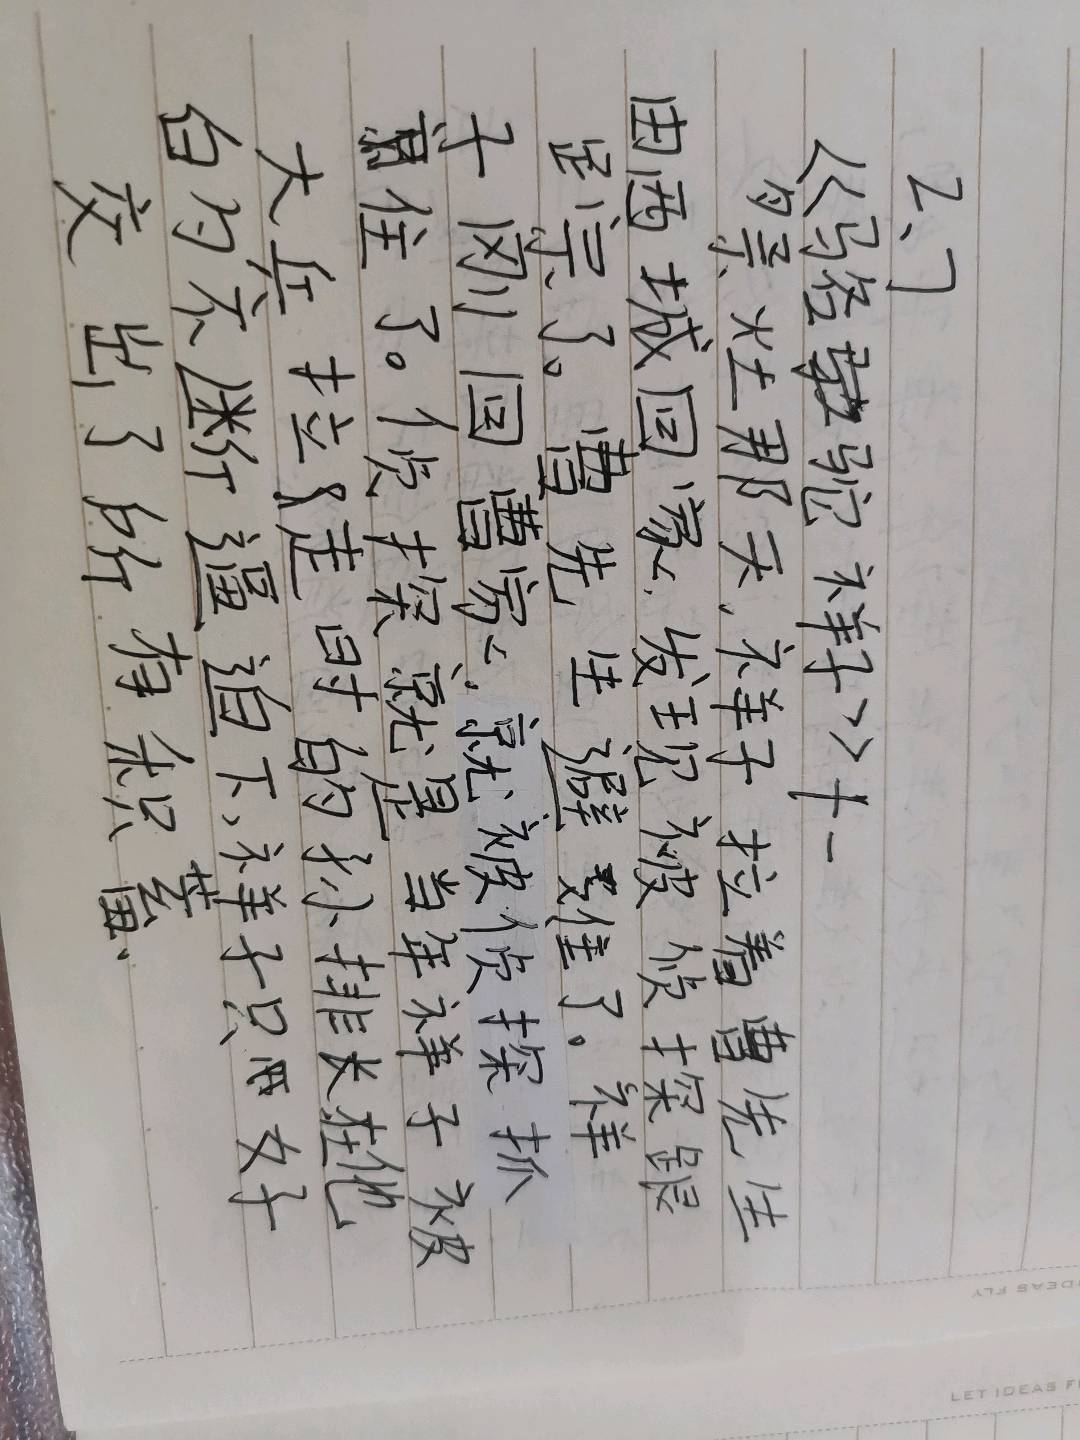 2、7
《骆驼祥子》十一
祭灶那天,祥子拉着曹先生
由西城回家,发现被侦探跟
踪了。曹先生避难了。祥
子刚回曹家,就被侦探抓
住了。侦探就是当年祥子被
大兵拉走时的孙排长在他
的不断逼迫下,祥子只好
交出了所有积蓄.
LET IDEAS F
IDEAS FLY